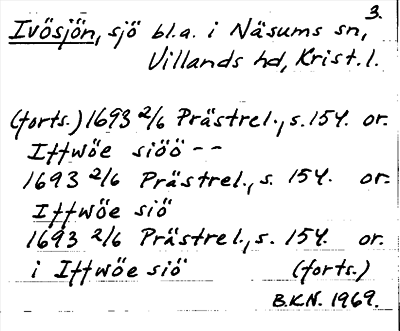 3.
Ivösjön, sjö bl.a. i Näsums sn,
Villands hd, Krist. l.
(forts.) 1693 2/6 Prästrel., s. 154. or.
Iffwöe siöö --
1693 2/6 Prästrel., s. 154. or.
Iffwöe siö
1693 2/6 Prästrel., s. 154. or.
i Iffwöe siö (forts.)
B.K.N. 1969.